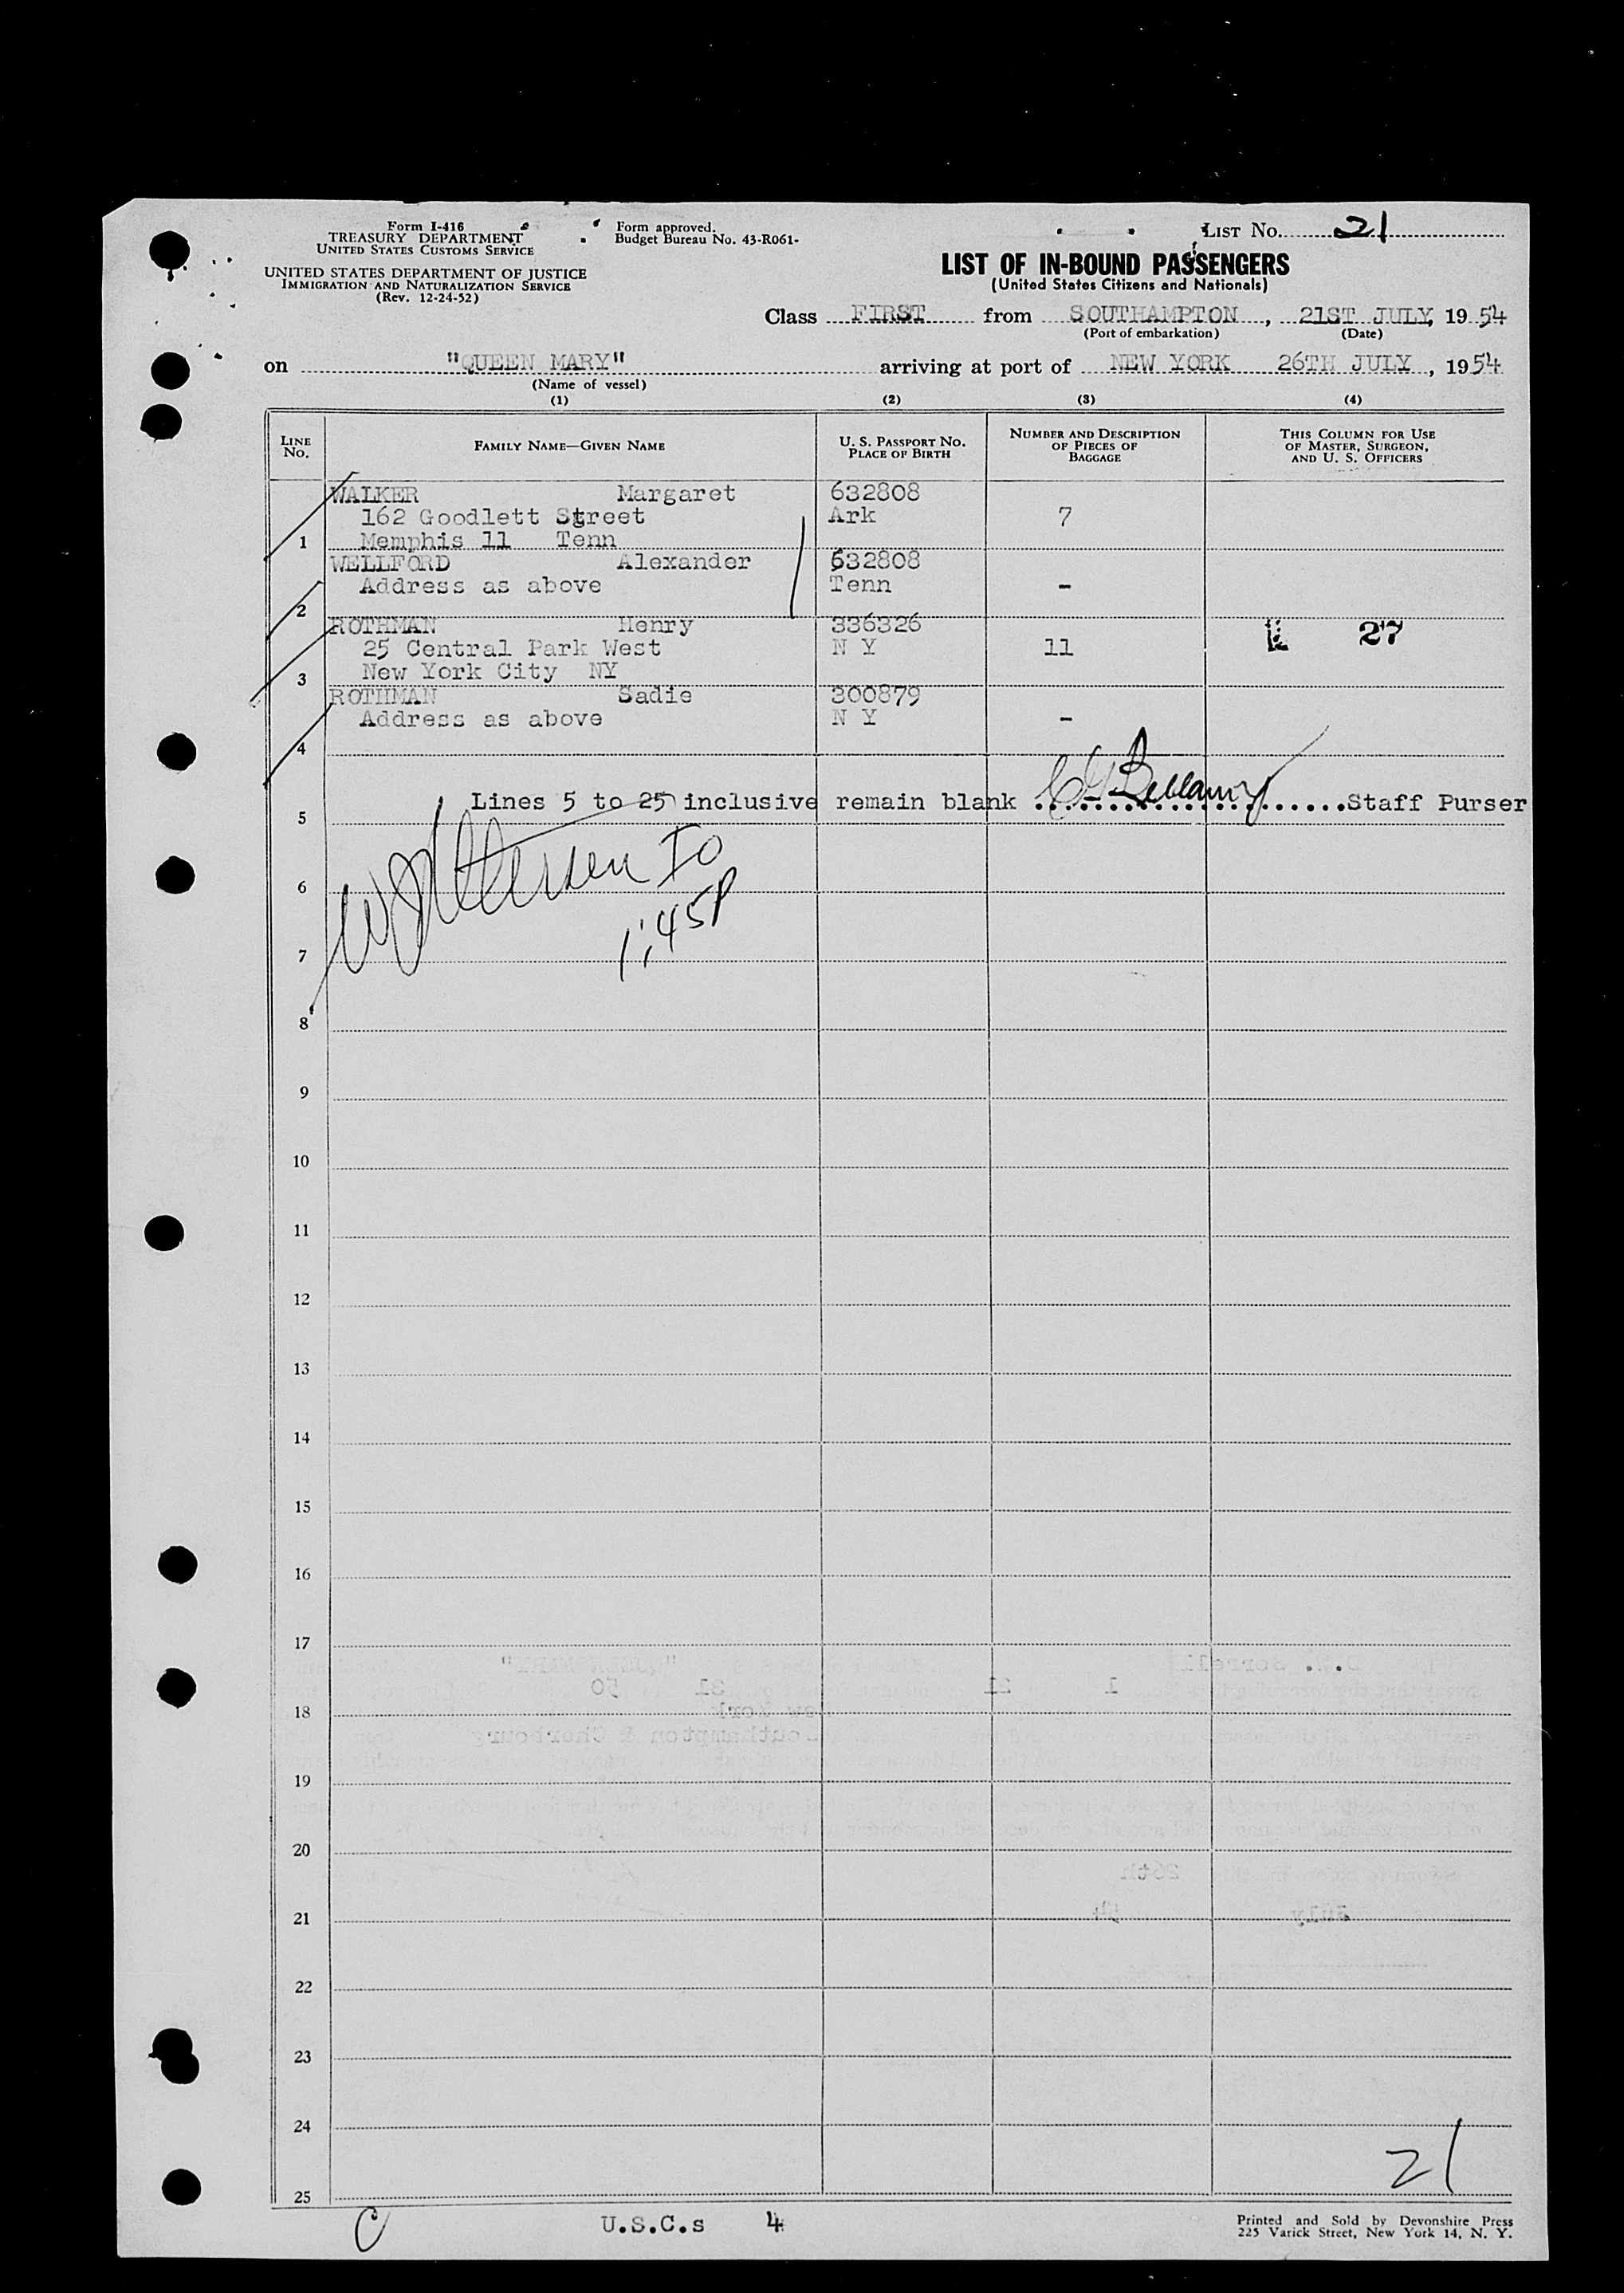 Form I-416
TREASURY DEPARTMENT
UNITED STATES CUSTOMS SERVICE
UNITED STATES DEPARTMENT OF JUSTICE
IMMIGRATION AND NATURALIZATION SERVICE
(Rev. 12-24-52)
Form approved.
Budget Bureau No. 43-R061-
LIST No. 21
LIST OF IN-BOUND PASSENGERS
(United States Citizens and Nationals)
Class FIRST from SOUTHAMPTON, 21ST JULY, 19 54
(Port of embarkation) (Date)
on "QUEEN MARY" arriving at port of NEW YORK 26TH JULY, 1954
(Name of vessel)
(1) (2) (3) (4)
LINE No. FAMILY NAME—GIVEN NAME U. S. PASSPORT No. PLACE OF BIRTH NUMBER AND DESCRIPTION OF PIECES OF BAGGAGE THIS COLUMN FOR USE OF MASTER, SURGEON, AND U. S. OFFICERS
WALKER Margaret 632808
162 Goodlett Street Ark 7
1 Memphis 11 Tenn
WELLFORD Alexander 632808
Address as above Tenn -
2
ROTHMAN Henry 336326
25 Central Park West N Y 11 27
3 New York City NY
ROTHMAN Sadie 300879
Address as above N Y -
4
Lines 5 to 25 inclusive remain blank Bellamy Staff Purser
5
6
IO
1:45P
7
8
9
10
11
12
13
14
15
16
17
18
19
20
21
22
23
24
21
25
C U.S.C.s 4
Printed and Sold by Devonshire Press
225 Varick Street, New York 14, N. Y.